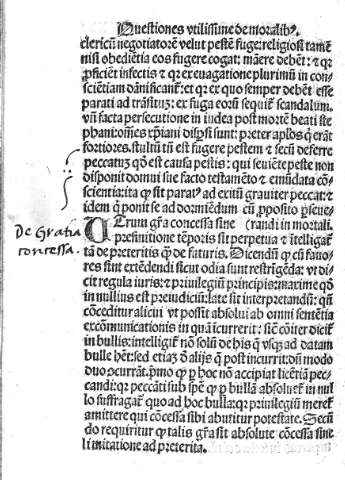 Questiones vtilissime de moralibꝰ
clericũ negotiatorẽ velut pestẽ fuge: religiosi tamẽ
nisi obediẽtia eos fugere cogat: manere debẽt: ⁊ qꝛ
ꝓficiẽt infectis ⁊ qꝛ ex euagatione plurimũ in con-
sciẽtiam dãnificant̃: et qꝛ ex quo semper debẽt esse
parati ad trãsitus: ex fuga eorũ sequit̃ scandalum.
vñ facta persecutione in iudea post mortẽ beati ste
phani: omẽs xp̃iani dispsi sunt: preter apl̃os qꝛ erãt
fortiores. stultũ tñ est fugere pestem ⁊ secũ deferre
peccatũ qd̃ est causa pestis: qui seuiẽte peste non
disponit domui sue facto testamẽto ⁊ emũdata cõ-
scientia: ita ꝙ sit paratꝰ ad exitũ grauiter peccat: ⁊
idem qñ ponit se ad dormiẽdum cũ ꝓposito ꝑseue-
De Gratia
concessa.
VTrum gr̃a concessa sine (randi in mortali.
prefinitione tẽporis sit perpetua ⁊ ĩtelligat̃
tã de preteritis ꝙ̃ de futuris. Dicendũ ꝙ cũ fauo-
res sint extẽdendi sicut odia sunt restrĩgẽda: vt di-
cit regula iuris: ⁊ priuilegiũ principis: maxime qd̃
in nullius est preiudiciũ: late sit interpretandũ: qñ
cõceditur alicui vt possit absolui ab omni sentẽtia
excõmunicationis in quã icurrerit: sicẽ cõiter dicit̃
in bullis: intelligit̃ nõ solũ de his qͣ vsqꝫ ad datam
bulle hẽt: sed etiaꝫ ĩ alijs qͣ post incurrit: dũ modo
duo ↄcurrãt. pͥmo ꝙ ꝑ hoc nõ accipiat licẽtiã pec-
candi: qꝛ peccãti sub spẽ ꝙ ꝑ bullã absoluet̃ in nul
lo suffragat̃ quo ad hoc bulla: qꝛ priuilegiũ meret̃
amittere qui cõcessa sibi abutitur potestate. Secũ
do requiritur ꝙ talis gr̃a sit absolute cõcessa sine
limitatione ad preterita.